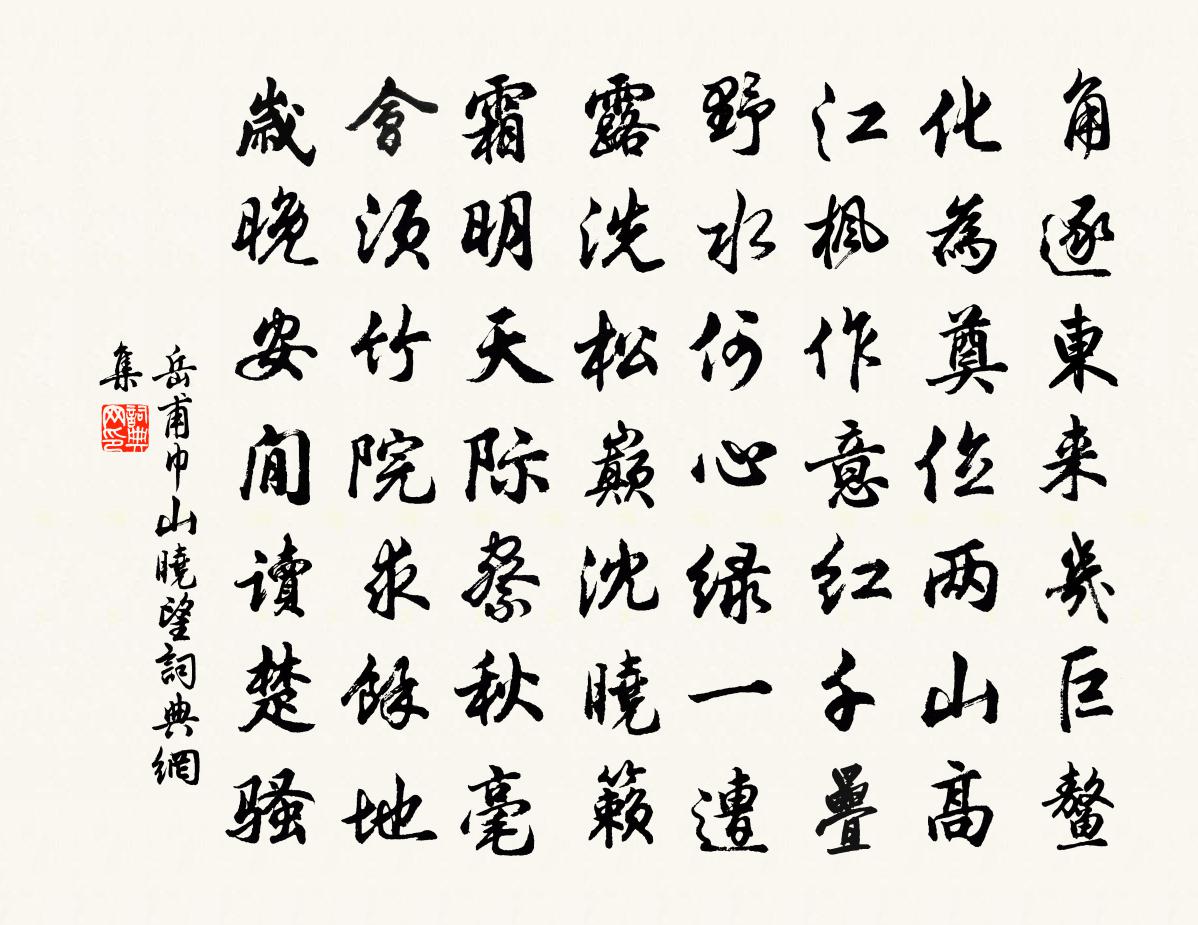 角逐東来幾巨鰲
化為奠位两山高
江楓作意紅千疊
野水何心緑一遭
露洗松巔沈曉籟
霜明天际察秋毫
會須竹院求餘地
歲晚安閒讀楚騷
岳甫巾山曉望詞典網
集
詞典
网印